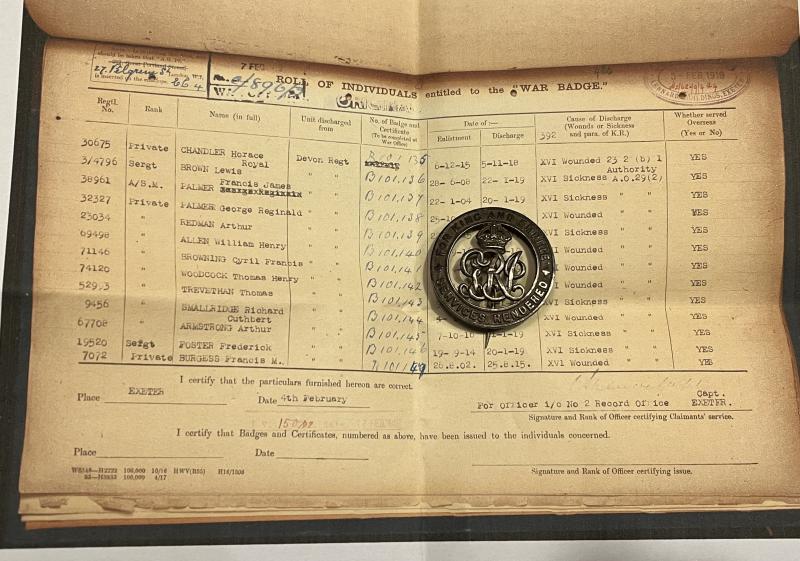 should be taken that "A.G.
7 FEB
27, Pelgrew St.
e/896/2
ROLL OF INDIVIDUALS entitled to the "WAR BADGE."
Regtl. No. Rank Name (in full) Unit discharged from No. of Badge and Certificate (To be completed at War Office) Date of :— Enlistment Discharge Cause of Discharge (Wounds or Sickness and para. of K.R.) 392 Whether served Overseas (Yes or No)
30675 Private CHANDLER Horace Royal Devon Regt B101,135 6-12-15 5-11-18 XVI Wounded 23 2 (b) 1 Authority YES
3/4796 Sergt BROWN Lewis " " B101,136 28-6-08 22-1-19 XVI Sickness A.O.29(2) YES
38961 A/S.M. PALMER Francis James " " B101,137 22-1-04 20-1-19 XVI Sickness " " YES
32327 Private PALMER George Reginald " " B101,138 XVI Wounded " " YES
23034 " REDMAN Arthur " " B101,139 XVI Sickness " " YES
69498 " ALLEN William Henry " " B101,140 Wounded " " YES
71146 " BROWNING Cyril Francis " " B101,141 Wounded " " YES
74120 " WOODCOCK Thomas Henry " " B101,142 Wounded " " YES
529.3 " TREVETHAN Thomas " " B101,143 XVI Sickness " " YES
9456 " SMALLRIDGE Richard Cuthbert " " B101,144 XVI Wounded " " YES
67708 " ARMSTRONG Arthur " " B101,145 7-10-16 1-1-19 XVI Sickness " " YES
19520 Sergt FOSTER Frederick " " B101,146 19-9-14 20-1-19 XVI Sickness " " YES
7072 Private BURGESS Francis M. " " 28.8.02. 25.8.15. XVI Wounded " " YES
FOR KING AND EMPIRE
SERVICES RENDERED
I certify that the particulars furnished hereon are correct.
Place EXETER Date 4th February
For Officer i/c No 2 Record Office Capt. EXETER.
Signature and Rank of Officer certifying Claimants' service.
I certify that Badges and Certificates, numbered as above, have been issued to the individuals concerned.
Place Date
Signature and Rank of Officer certifying issue.
W8548—H2222 100,000 10/16 HWV(R55) H16/1306
93—H3933 100,000 4/17